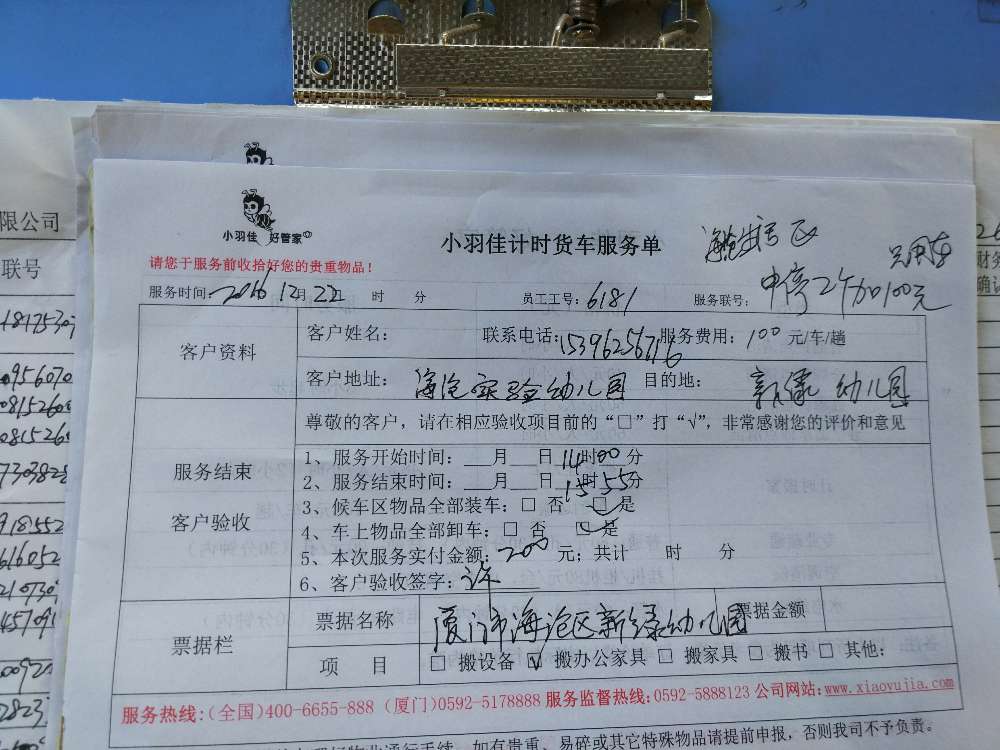 小羽佳 好管家
小羽佳计时货车服务单
请您于服务前收拾好您的贵重物品!
中停2个加100元
服务时间: 2016 12月 22 时 分 员工工号: 6181 服务联号:
客户资料
客户姓名: 联系电话: 15396256716 服务费用: 100 元/车/趟
客户地址: 海沧实验幼儿园 目的地: 新绿 幼儿园
尊敬的客户，请在相应验收项目前的“□”打“√”，非常感谢您的评价和意见
服务结束
客户验收
1、服务开始时间: __月__日 14时00分
2、服务结束时间: __月__日 15时55分
3、候车区物品全部装车: □ 否 ☑ 是
4、车上物品全部卸车: □ 否 ☑ 是
5、本次服务实付金额: 200 元; 共计 时 分
6、客户验收签字: 许
票据栏
票据名称 厦门市海沧区新绿幼儿园 票据金额
项 目 □ 搬设备 ☑ 搬办公家具 □ 搬家具 □ 搬书 □ 其他:
服务热线:(全国)400-6655-888 (厦门)0592-5178888 服务监督热线:0592-5888123 公司网站:www.xiaoyujia.com
如有贵重、易碎或其它特殊物品请提前申报，否则我司不予负责。
限公司
联号
财务
确认